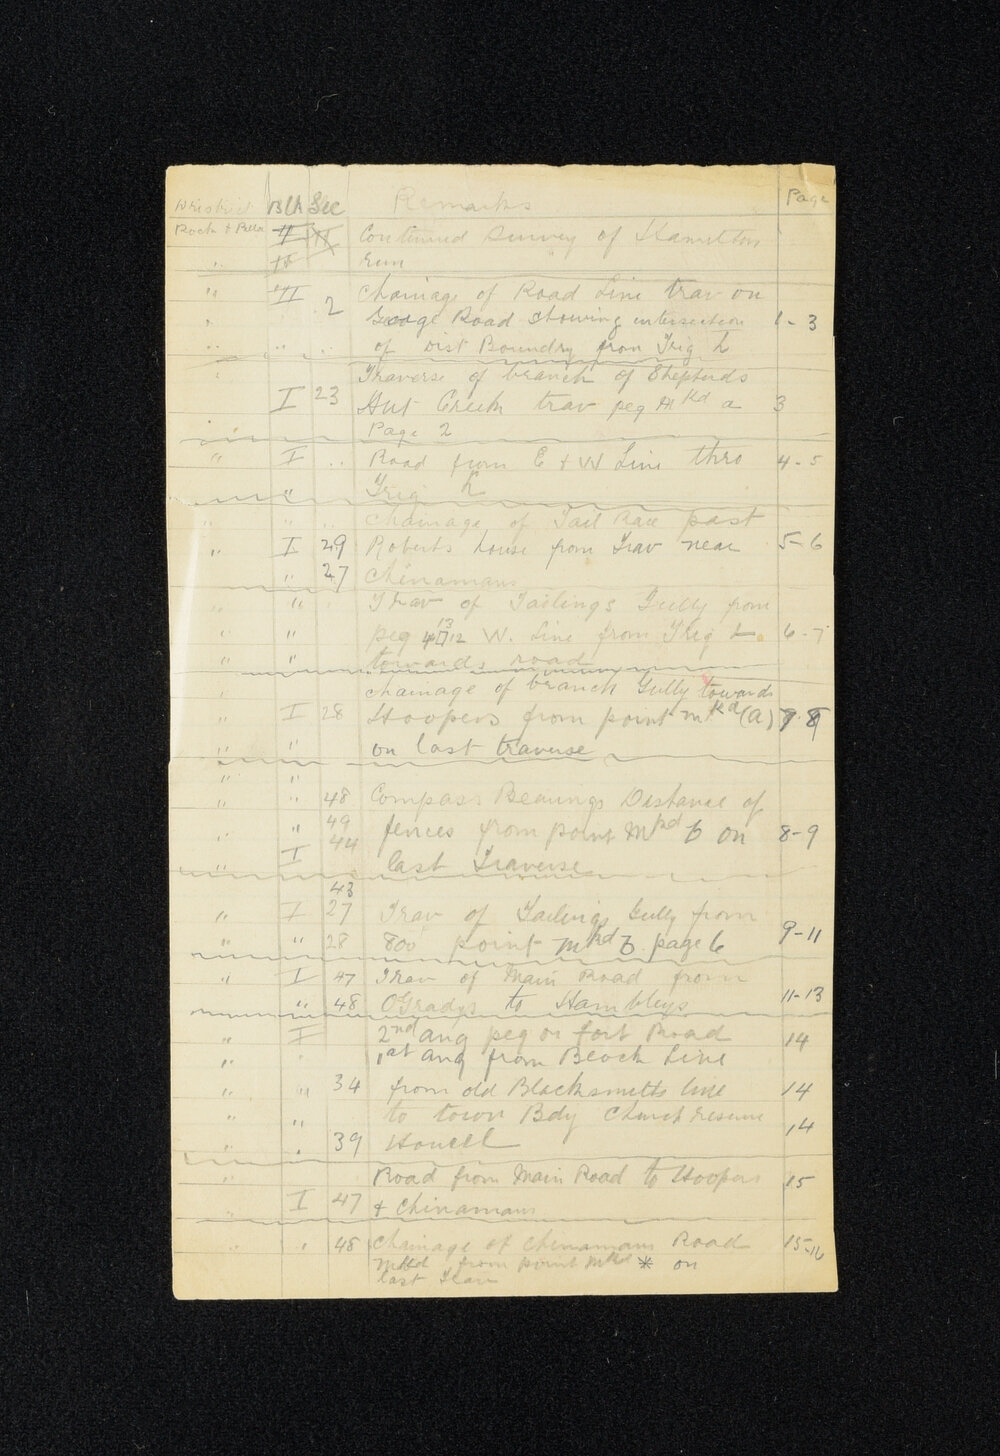 District Blk Sec Remarks Page
Rock & Pillar II Continued Survey of Hamilton
" II Run
" II 2 Chainage of Road Line trav on
" George Road showing intersection 1-3
" " " of Dist Boundry from Trig h
" Traverse of branch of Shepherds
I 23 Hut Creek trav peg Mkd a 3
Page 2
" I " Road from E & W Line thro 4-5
" " Trig h
" " " Chainage of Tail Race past
" I 29 Roberts house from Trav near 5-6
" 27 Chinamans
" " Trav of Tailings Gully from
" " peg W. Line from Trig h 6-7
" " towards road
" chainage of branch Gully towards
" I 28 Hoopers from point mkd (a) 8
" " on last traverse
" "
" " 48 Compass Bearings Distance of
" 49 fences from point Mkd b on 8-9
I 44
" last Traverse
43
" I 27 Trav of Tailings Gully from
" " 28 800 point mkd b page 6 9-11
" I 47 Trav of Main Road from
" " 48 OGradys to Hambleys 11-13
" I 2nd ang peg on fort Road 14
" 1st ang from Block Line
" " 34 from old Blacksmiths line 14
" " to town Bdy Church reserve 14
" " 39 Howell
" Road from Main Road to Hoopers 15
" I 47 & Chinamans
" " 48 Chainage of Chinamans Road 15-16
from point mkd * on
last Trav